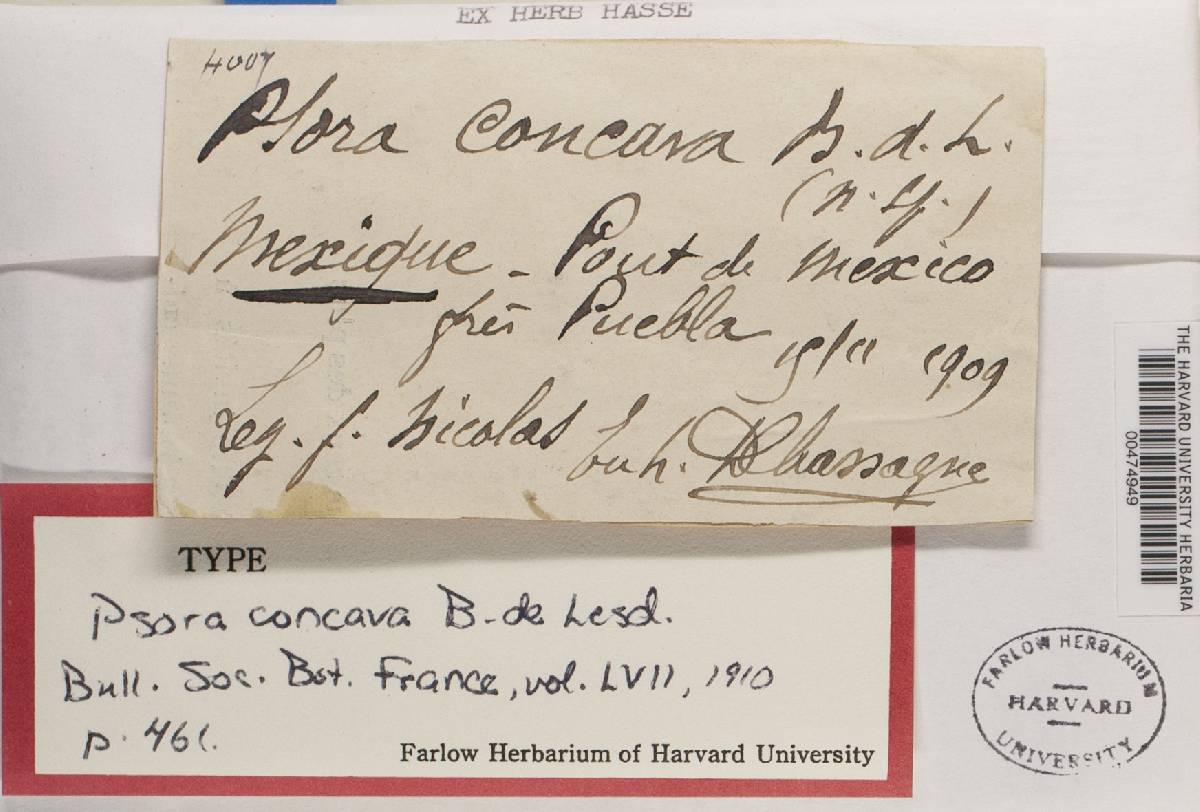 EX HERB HASSE
4007
Psora concava B. d. L.
(n. sp.)
Mexique - Pont de Mexico
près Puebla 15/11 1909
Leg. f. Nicolas
TYPE
Psora concava B. de Lesd.
Bull. Soc. Bot. France, vol. LVII, 1910
p. 461.
Farlow Herbarium of Harvard University
THE HARVARD UNIVERSITY HERBARIA
00474949
FARLOW HERBARIUM
HARVARD
UNIVERSITY